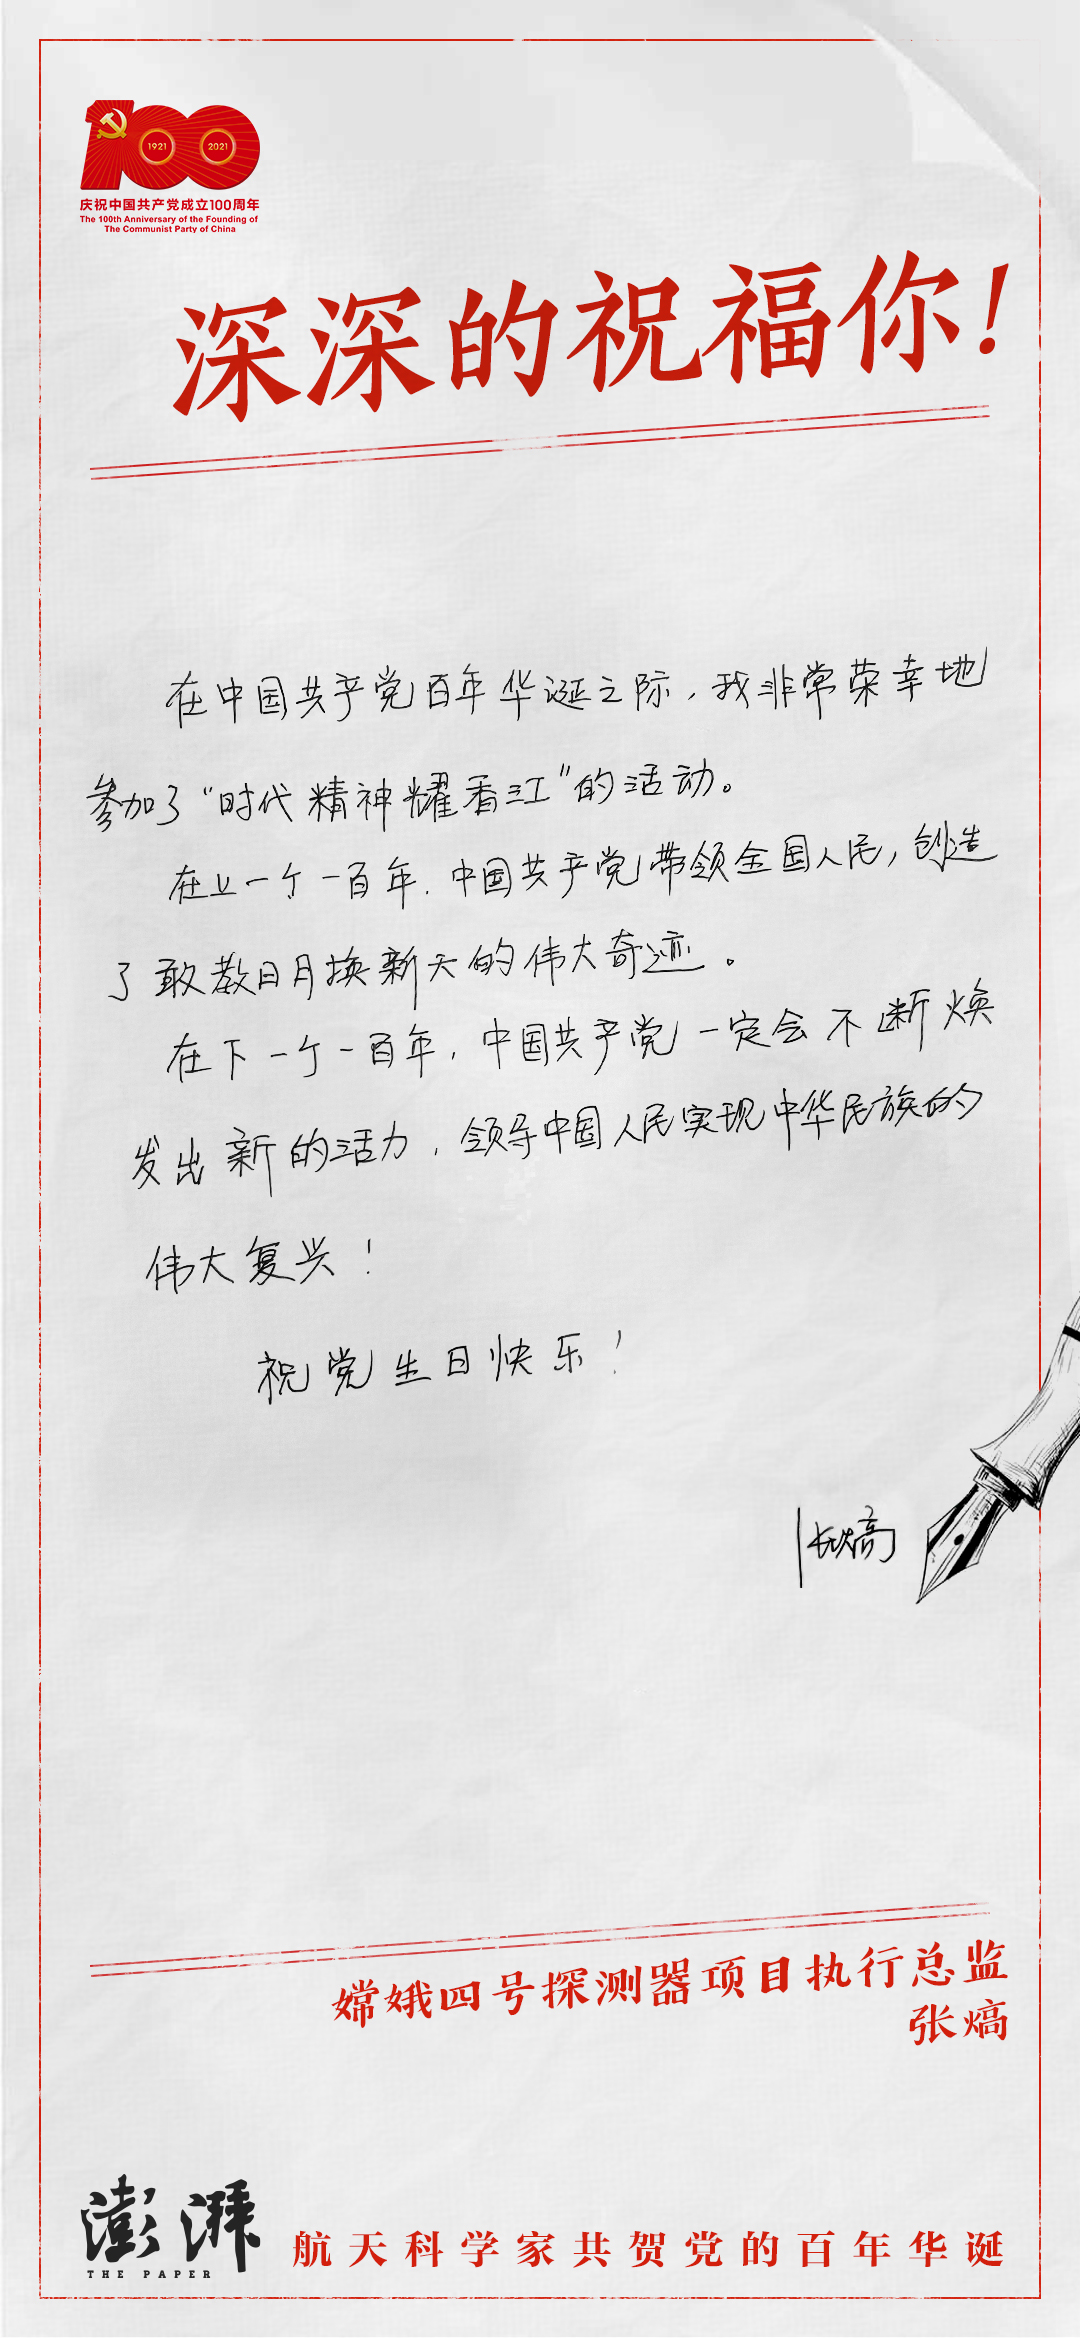 100
1921
2021
庆祝中国共产党成立100周年
The 100th Anniversary of the Founding of
The Communist Party of China
深深的祝福你!
在中国共产党百年华诞之际,我非常荣幸地
参加了“时代精神耀香江”的活动。
在上一个一百年,中国共产党带领全国人民,创造
了敢教日月换新天的伟大奇迹。
在下一个一百年,中国共产党一定会不断焕
发出新的活力,领导中国人民实现中华民族的
伟大复兴!
祝党生日快乐!
张熇
嫦娥四号探测器项目执行总监
张熇
澎湃
THE PAPER
航天科学家共贺党的百年华诞